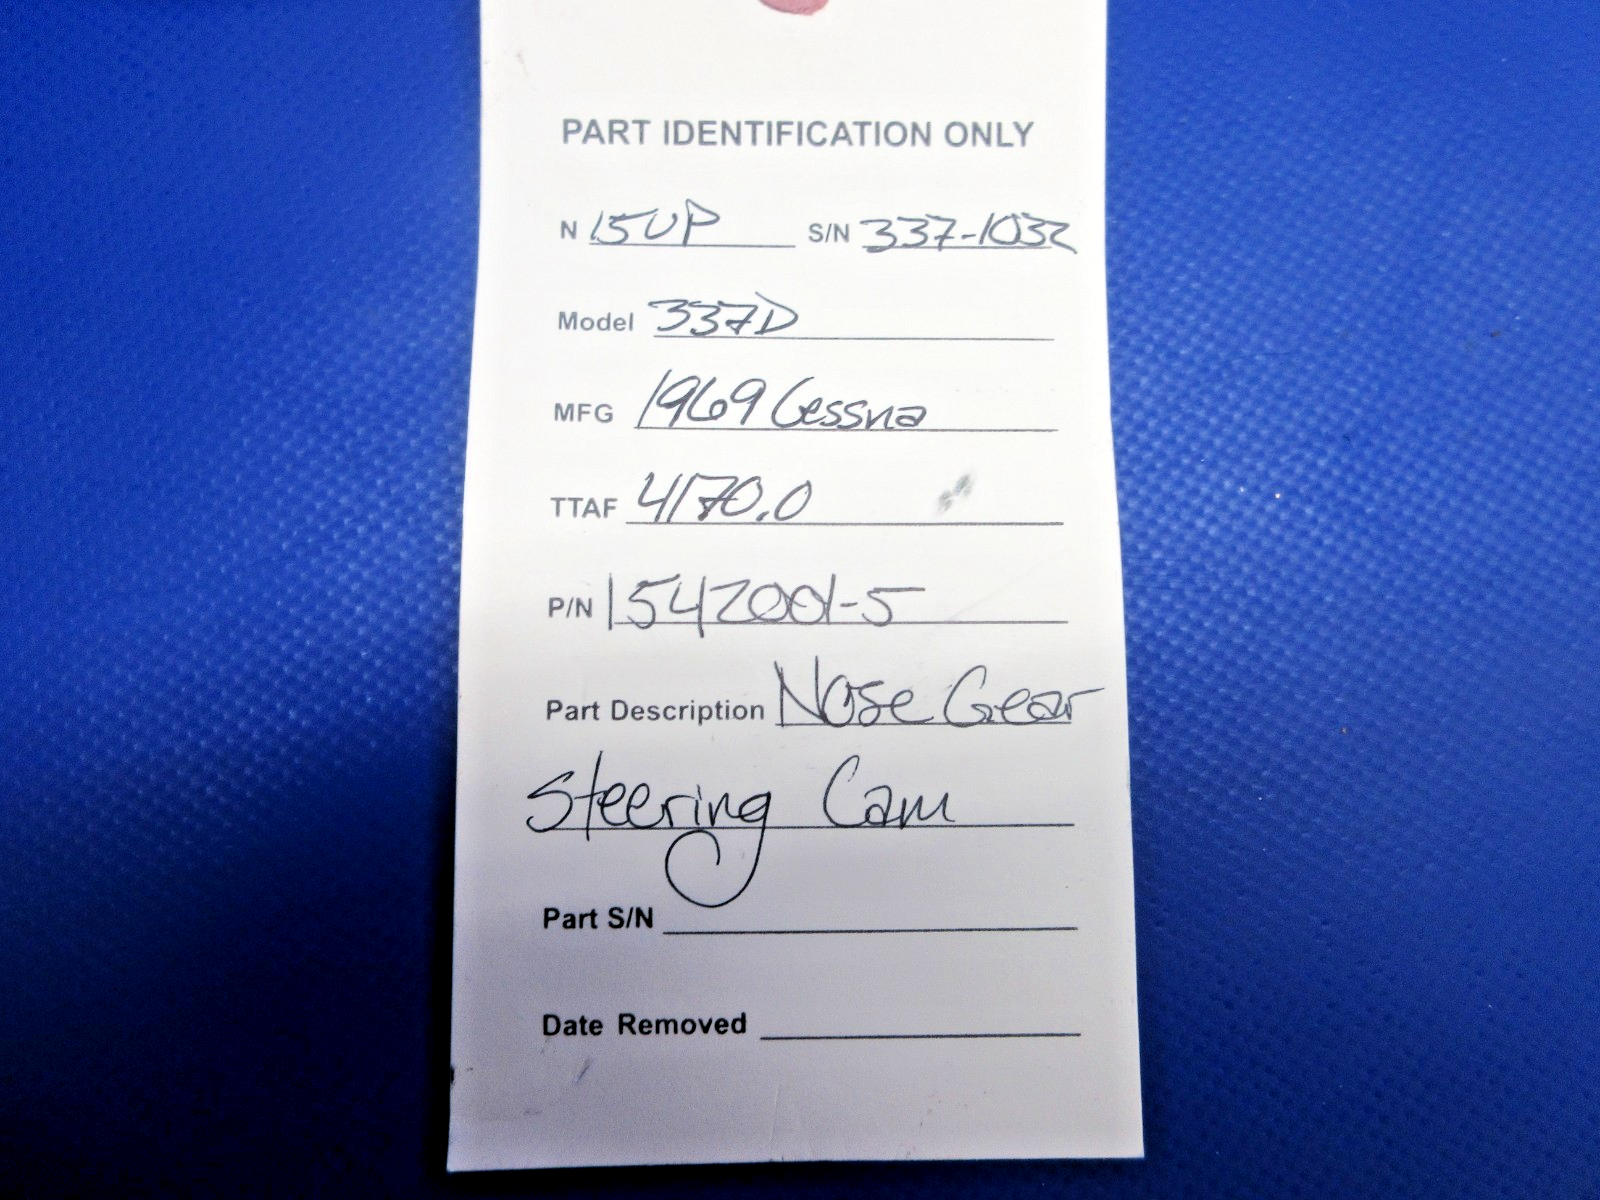 PART IDENTIFICATION ONLY
N 15UP S/N 337-1032
Model 337D
MFG 1969 Cessna
TTAF 4170.0
P/N 1542001-5
Part Description Nose Gear
Steering Cam
Part S/N
Date Removed